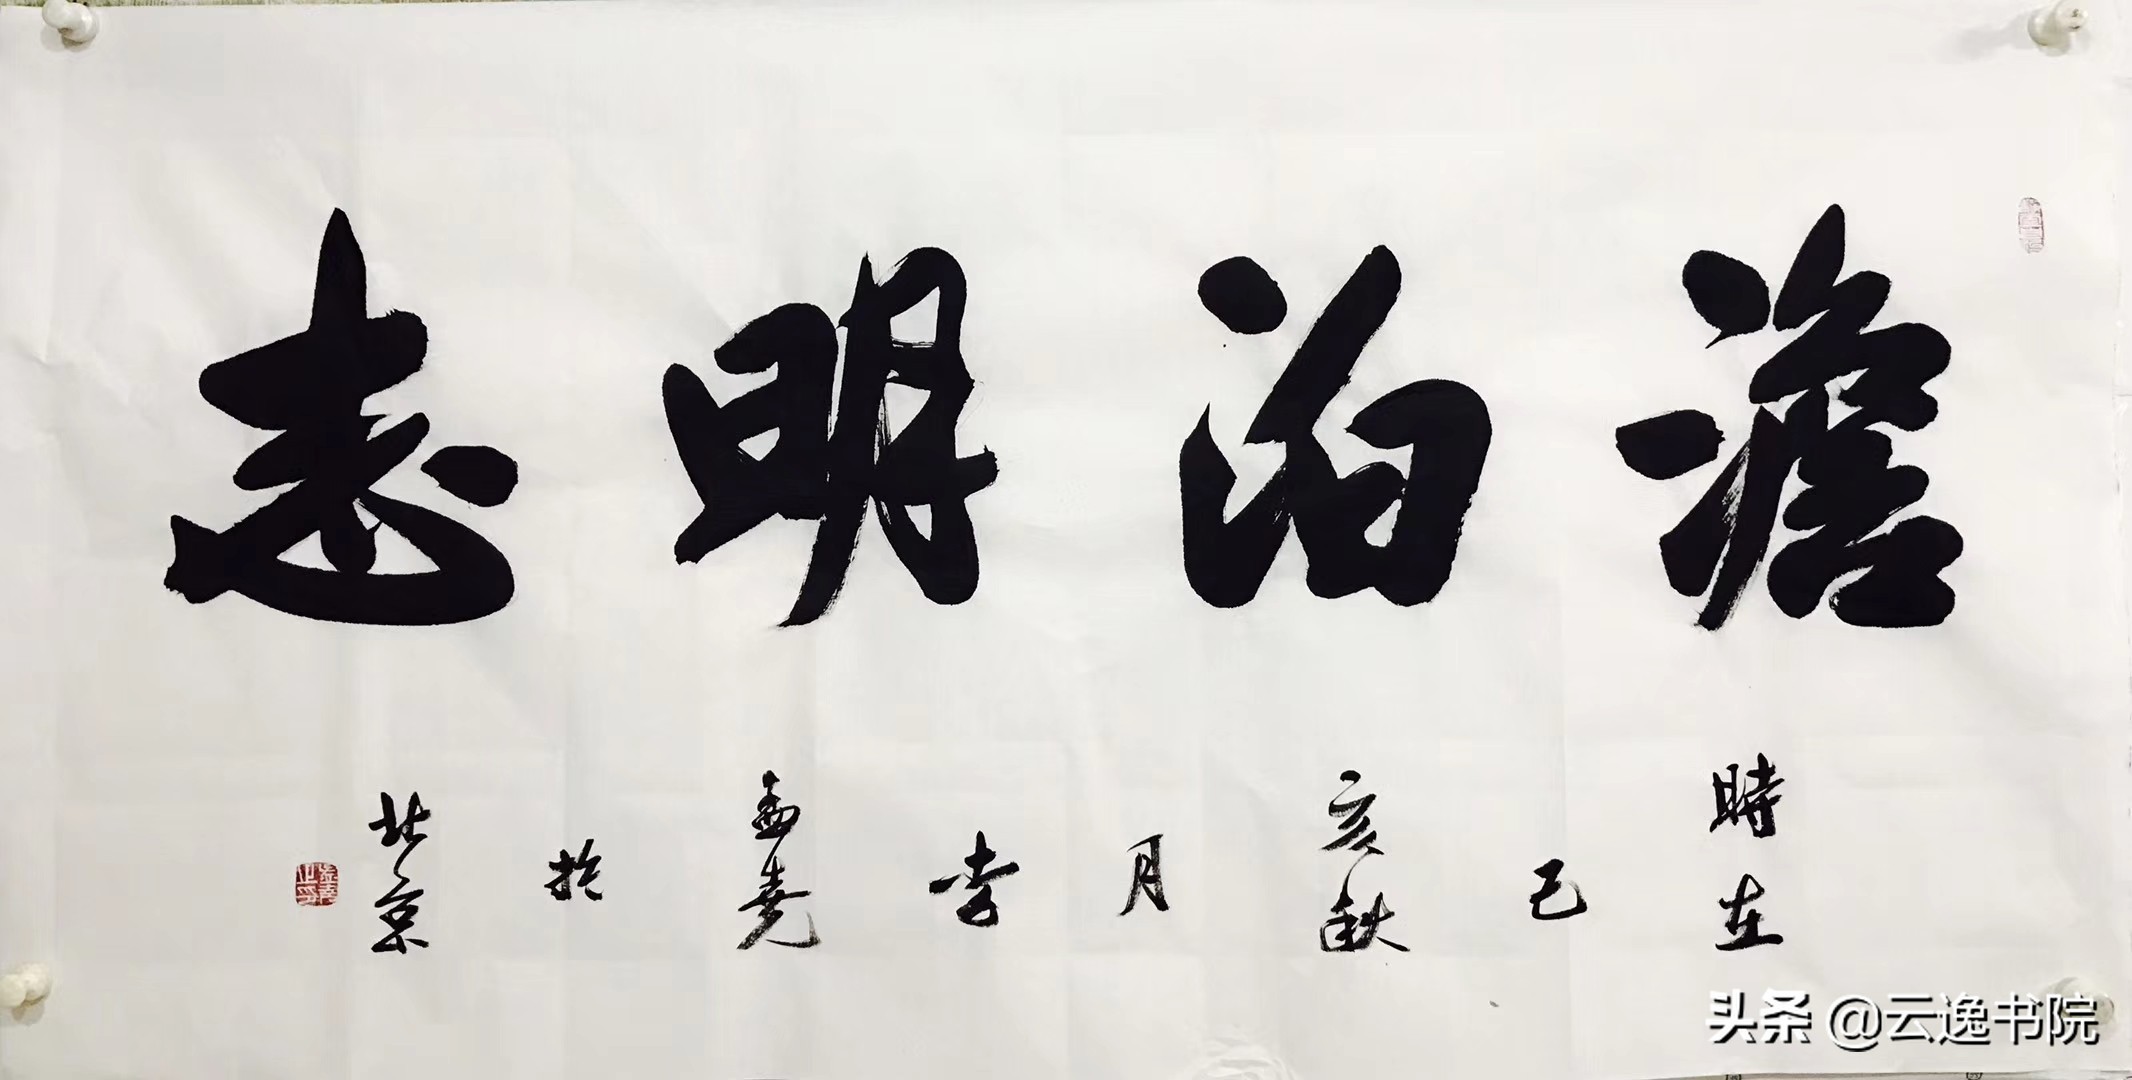 澹泊明志
時在己亥秋月李孟堯於北京
头条 @云逸书院